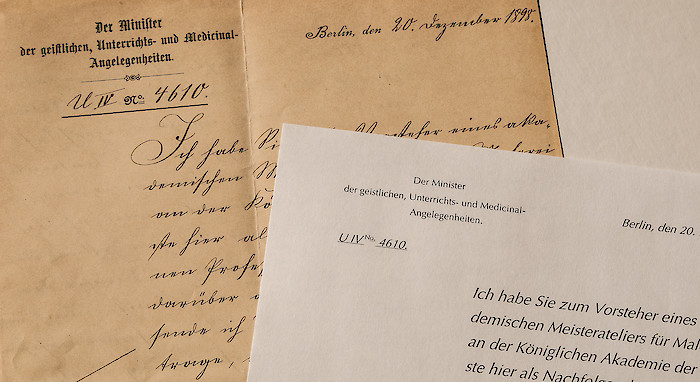 Der Minister
der geistlichen, Unterrichts- und Medicinal-
Angelegenheiten.
Berlin, den 20. Dezember 1898.
U IV No. 4610.
Ich habe Si Vorsteher eines aka-
demischen M
an der Kö
ste hier al
nen Profe
darüber
sende ich
trage,
Der Minister
der geistlichen, Unterrichts- und Medicinal-
Angelegenheiten.
Berlin, den 20.
U IV No. 4610.
Ich habe Sie zum Vorsteher eines
demischen Meisterateliers für Mal
an der Königlichen Akademie der
ste hier als Nachfolge